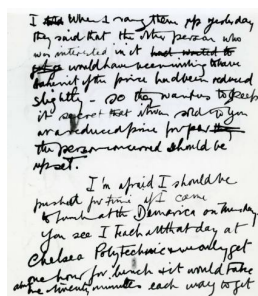 I told When I rang them up yesterday
they said that the other person who
was interested in it had wanted to
would have been willing to have
taken it if the price had been reduced
slightly - so they want us to keep
it secret that it was sold to you
at a reduced price for fear
the person concerned should be
upset.
I'm afraid I should be
pushed for time if I came
to lunch at the on Tuesday.
You see I teach all that day at
Chelsea Polytechnic & we only get
one hour for lunch & it would take
me twenty minutes each way to get